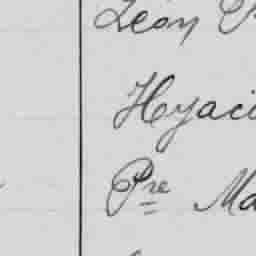 Léon
Hyaci
Pre Ma